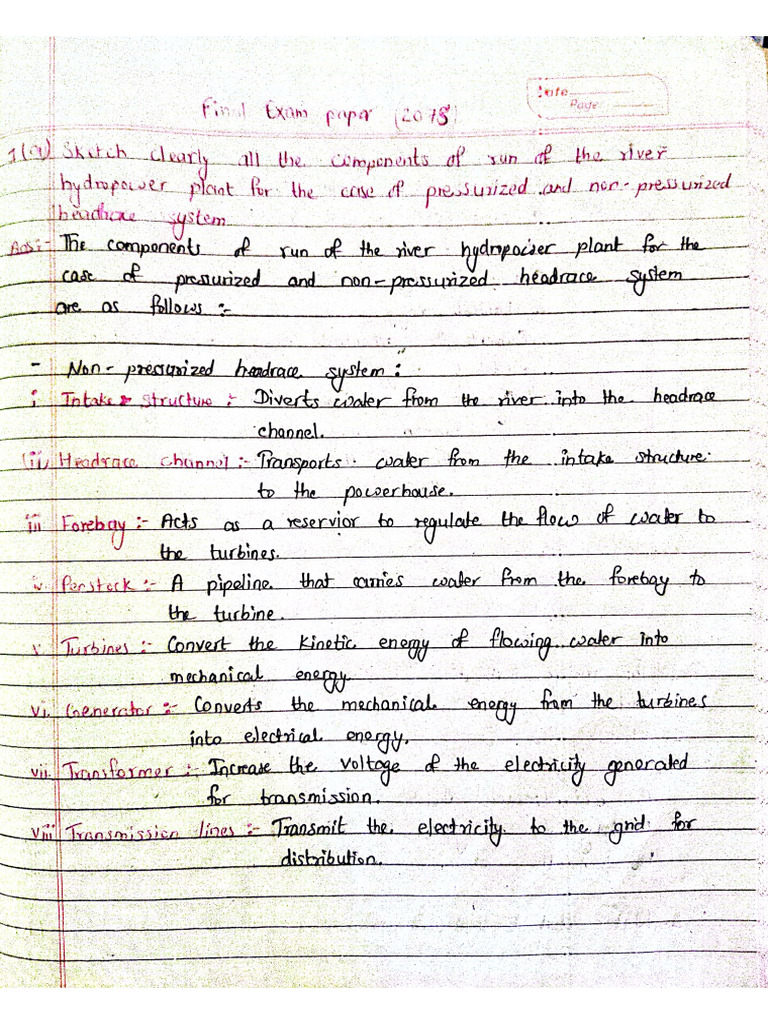 Date
Page
Final Exam paper (2075)
1(a) Sketch clearly all the components of run of the river
hydropower plant for the case of pressurized and non-pressurized
headrace system
Ans:- The components of run of the river hydropower plant for the
case of pressurized and non-pressurized headrace system
are as follows :-
- Non-pressurized headrace system :
i Intake structure :- Diverts water from the river into the headrace
channel.
(ii) Headrace channel :- Transports water from the intake structure
to the powerhouse.
iii Forebay :- Acts as a reservior to regulate the flow of water to
the turbines.
iv. Penstock :- A pipeline that carries water from the forebay to
the turbine.
v. Turbines :- Convert the kinetic energy of flowing water into
mechanical energy
vi. Generator :- Converts the mechanical energy from the turbines
into electrical energy.
vii. Transformer :- Increase the voltage of the electricity generated
for transmission.
viii Transmission lines :- Transmit the electricity to the grid for
distribution.